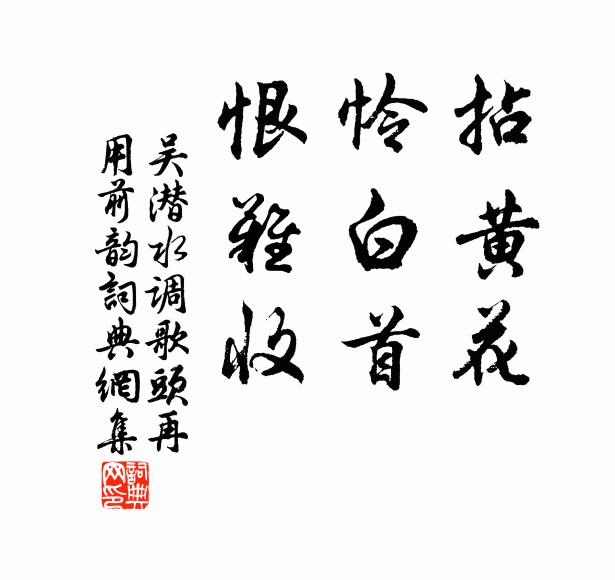 拈黄花
怜白首
恨難收
吴潜水调歌頭再
用前韵詞典網集
詞典网印